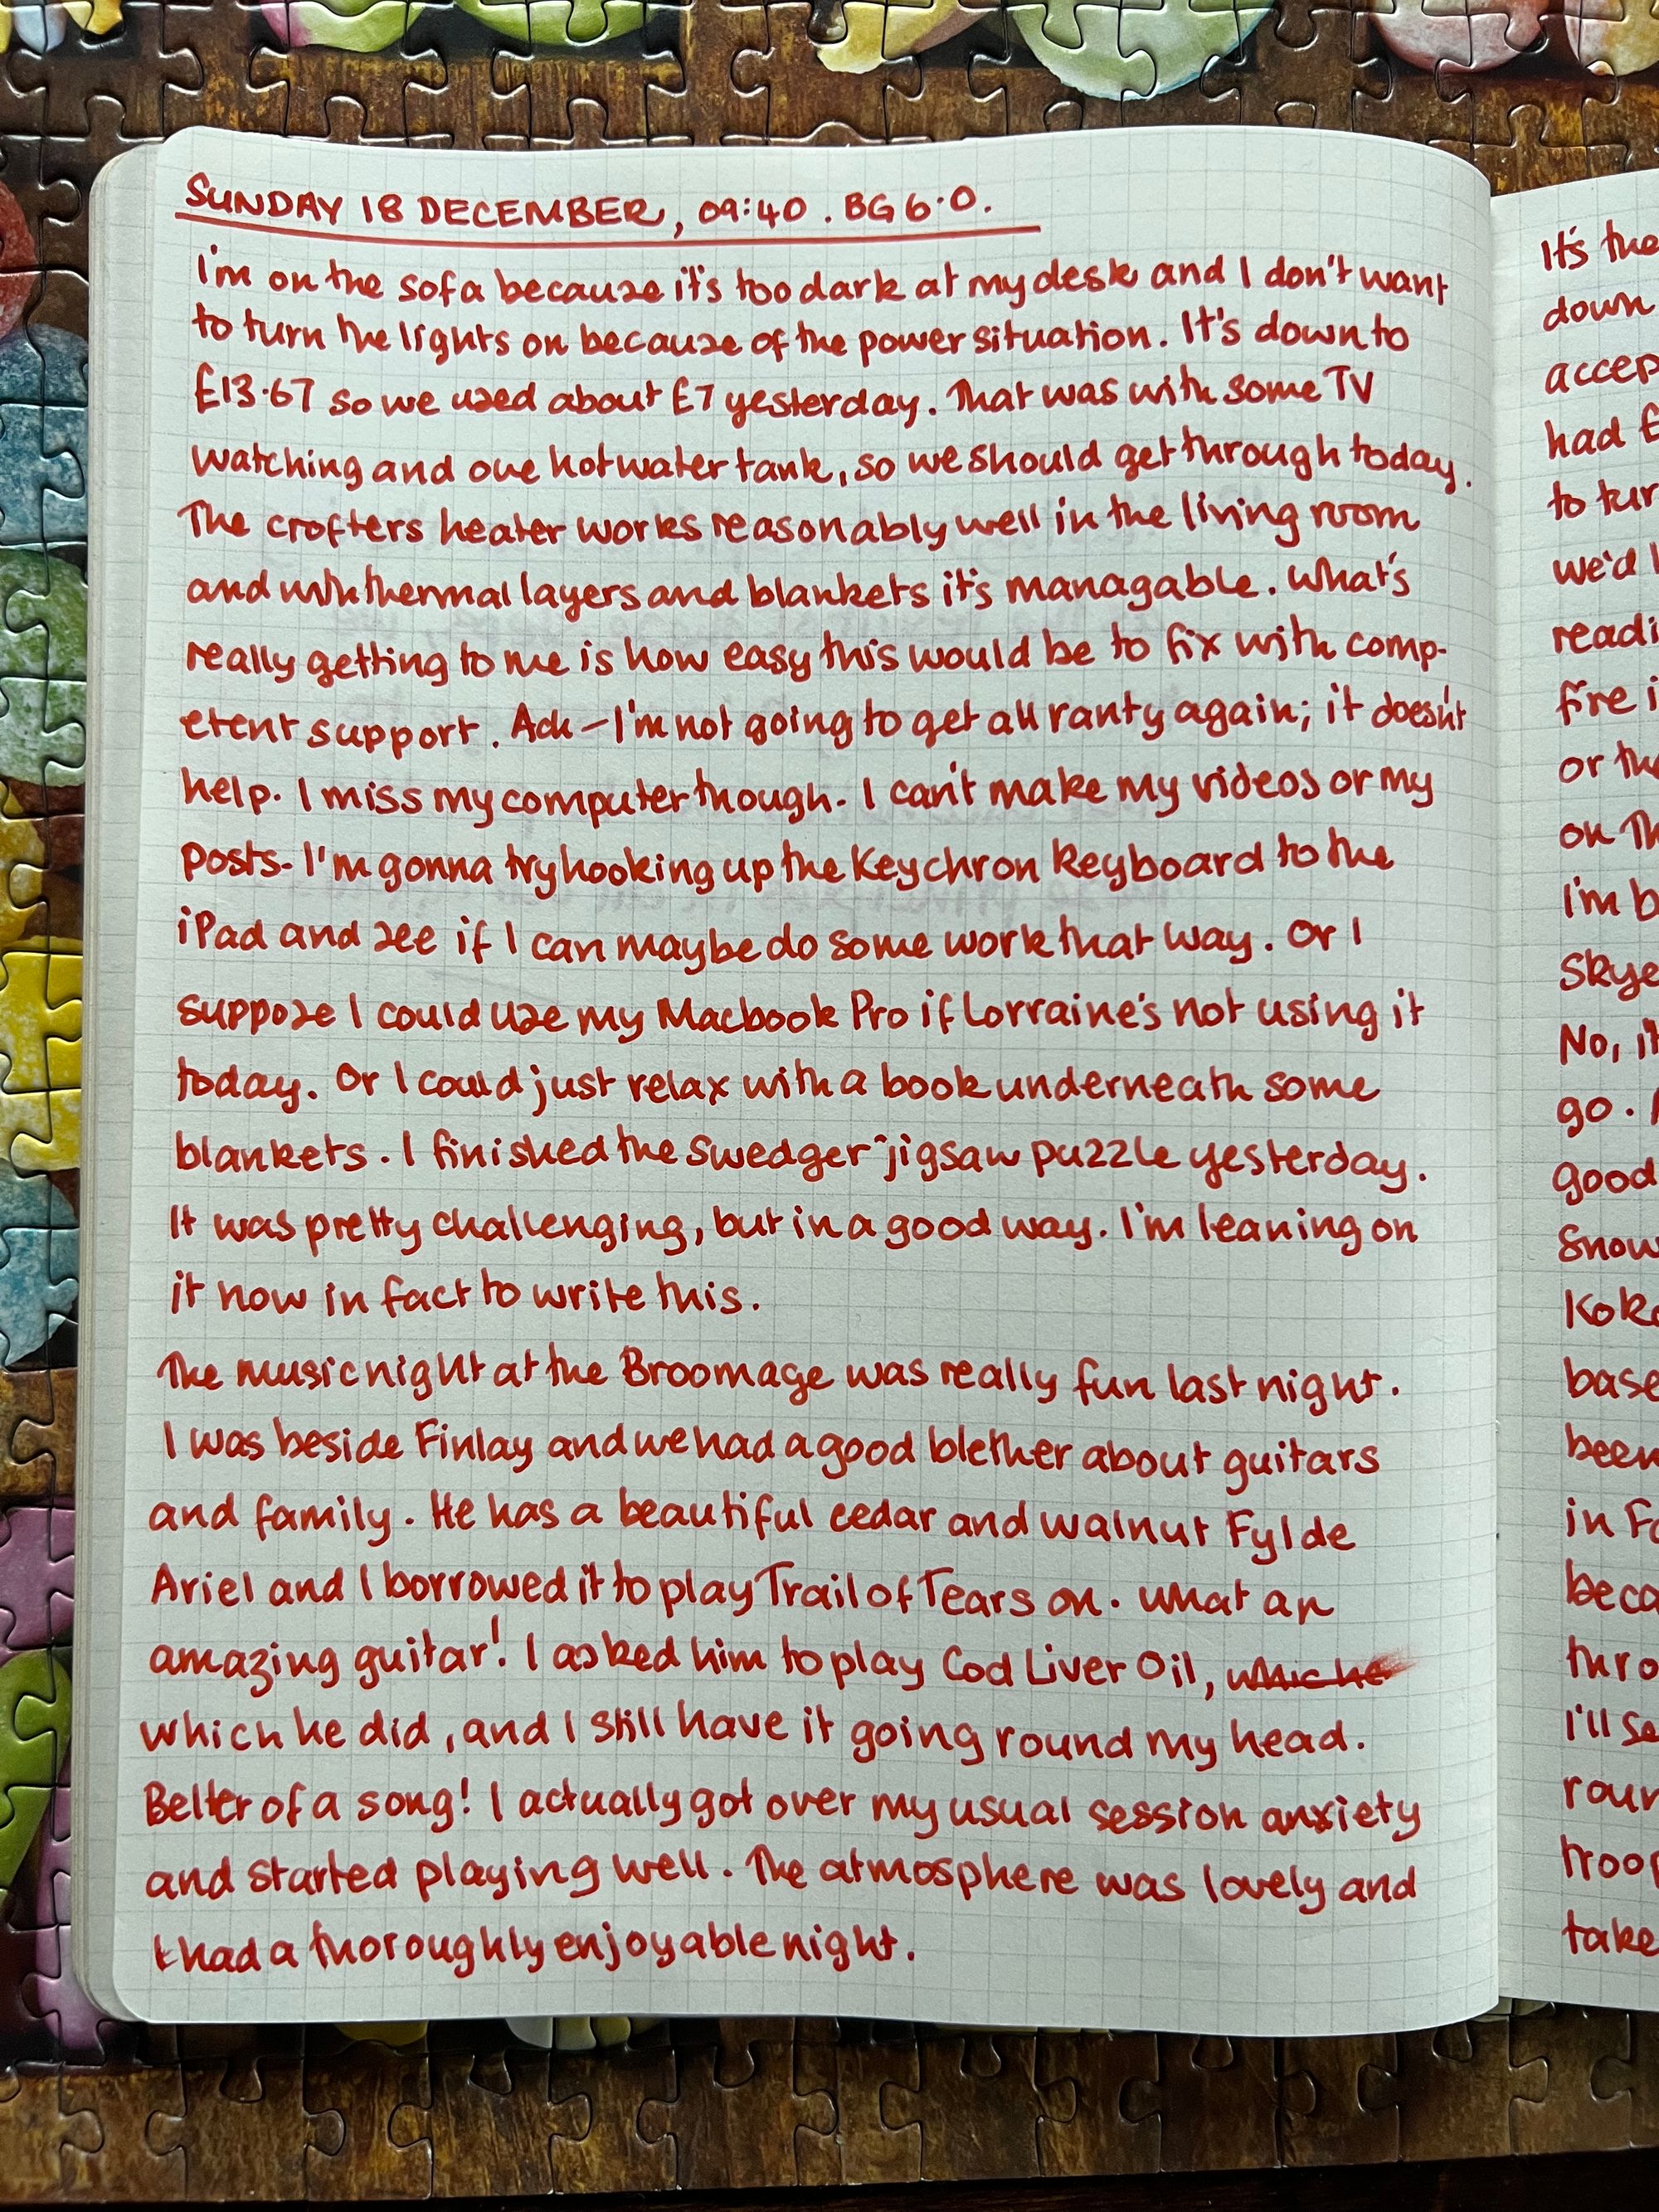 SUNDAY 18 DECEMBER, 09:40. BG 6.0.
I'm on the sofa because it's too dark at my desk and I don't want
to turn the lights on because of the power situation. It's down to
£13.67 so we used about £7 yesterday. That was with some TV
watching and one hot water tank, so we should get through today.
The crofters heater works reasonably well in the living room
and with thermal layers and blankets it's managable. What's
really getting to me is how easy this would be to fix with comp-
etent support. Ach - I'm not going to get all ranty again; it doesn't
help. I miss my computer though. I can't make my videos or my
posts. I'm gonna try hooking up the Keychron keyboard to the
iPad and see if I can maybe do some work that way. Or I
suppose I could use my Macbook Pro if Lorraine's not using it
today. Or I could just relax with a book underneath some
blankets. I finished the Swedger jigsaw puzzle yesterday.
It was pretty challenging, but in a good way. I'm leaning on
it now in fact to write this.
The music night at the Broomage was really fun last night.
I was beside Finlay and we had a good blether about guitars
and family. He has a beautiful cedar and walnut Fylde
Ariel and I borrowed it to play Trail of Tears on. What an
amazing guitar! I asked him to play Cod Liver Oil, which he
which he did, and I still have it going round my head.
Belter of a song! I actually got over my usual session anxiety
and started playing well. The atmosphere was lovely and
I had a thoroughly enjoyable night.
It's the
down
accep
had £
to tur
we'd
readi
fire i
or the
on Th
I'm b
Skye
No, it
go.
good
Snow
Koko
base
been
in Fo
beca
thro
I'll se
roun
troop
take